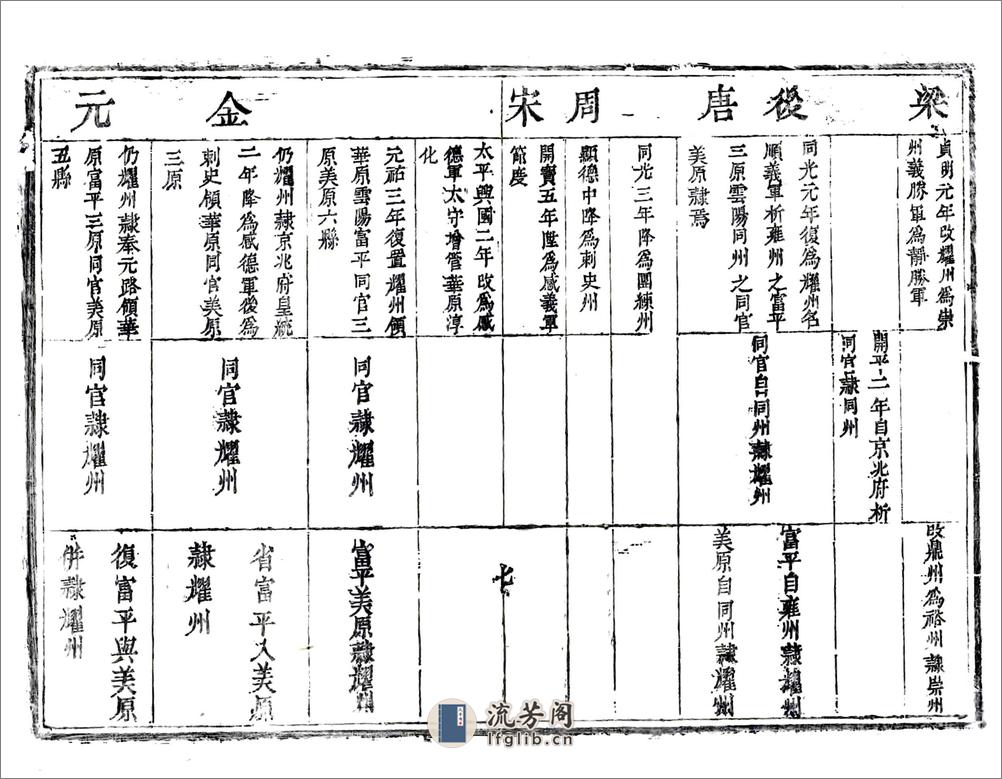 梁
後唐
周
宋
金
元
貞明元年改耀州為崇
州義勝軍為靜勝軍
同光元年復為耀州名
順義軍析雍州之富平
三原雲陽同州之同官
美原隷焉
同光三年降為團練州
顯德中降為刺史州
開寶五年陞為感義軍
節度
太平興國二年改為感
德軍太守增管華原淳
化
元祐三年復置耀州領
華原雲陽富平同官三
原美原六縣
仍耀州隷京兆府皇統
二年降為感德軍後為
刺史領華原同官美原
三原
仍耀州隷奉元路領華
原富平三原同官美原
五縣
開平二年自京兆府析
同官隷同州
同官自同州隷耀州
同官隷耀州
同官隷耀州
同官隷耀州
改鼎州為裕州隷崇州
富平自雍州隷耀州
美原自同州隷耀州
七
富平美原隷耀州
省富平入美原
隷耀州
復富平與美原
併隷耀州
流芳阁
lfglib.cn